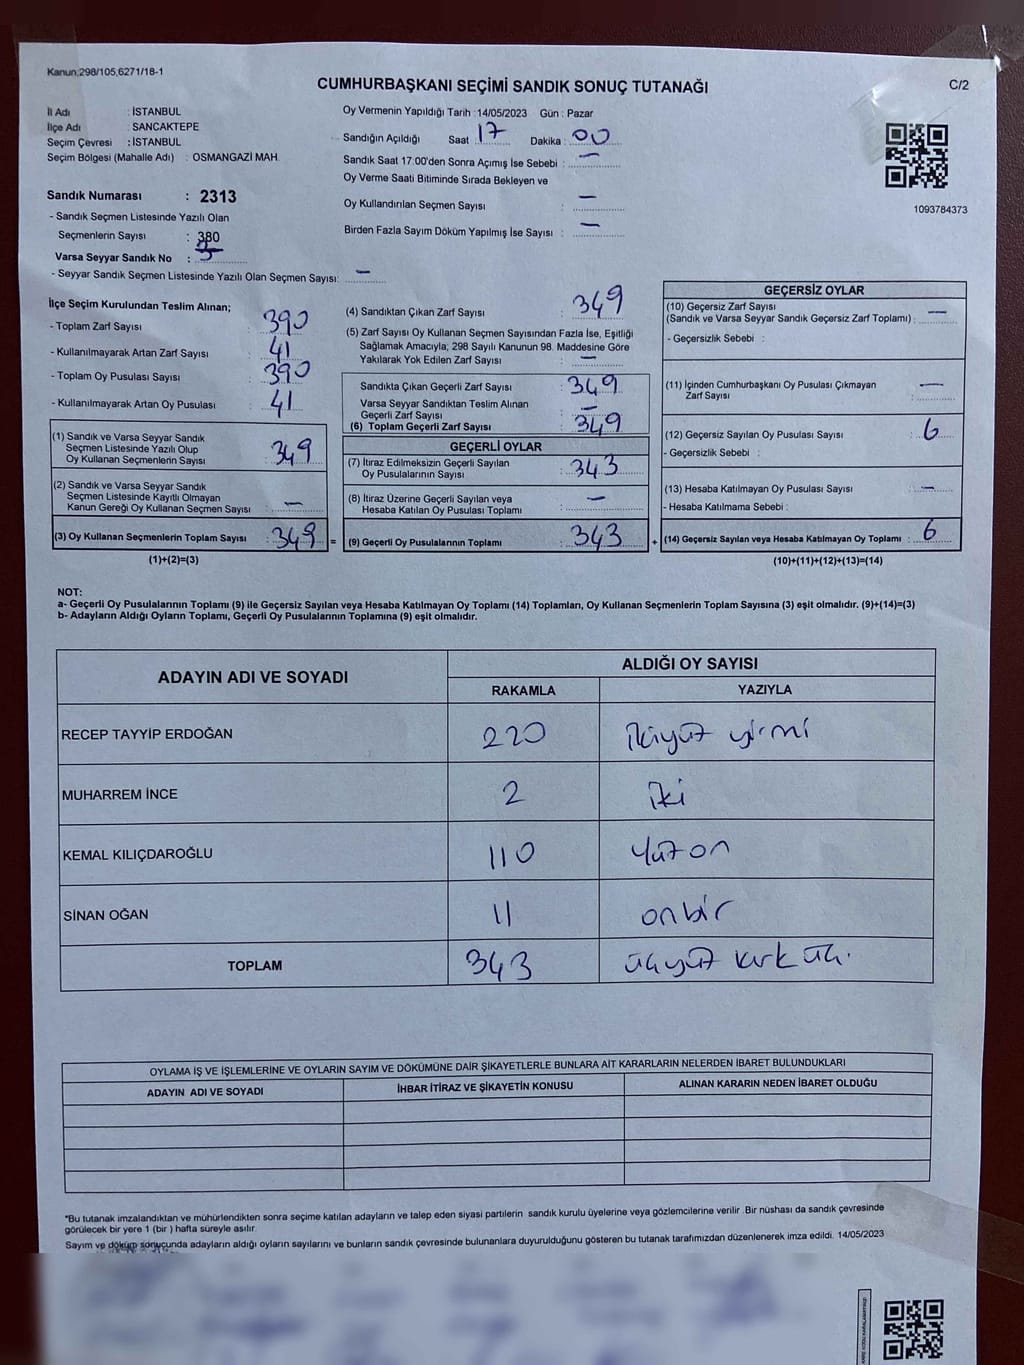 Kanun;298/105,6271/18-1
CUMHURBAŞKANI SEÇİMİ SANDIK SONUÇ TUTANAĞI
C/2
İl Adı : İSTANBUL
İlçe Adı : SANCAKTEPE
Seçim Çevresi : İSTANBUL
Seçim Bölgesi (Mahalle Adı) : OSMANGAZİ MAH.
Sandık Numarası : 2313
- Sandık Seçmen Listesinde Yazılı Olan
Seçmenlerin Sayısı : 380
Varsa Seyyar Sandık No :
- Seyyar Sandık Seçmen Listesinde Yazılı Olan Seçmen Sayısı: —
Oy Vermenin Yapıldığı Tarih : 14/05/2023 Gün : Pazar
Sandığın Açıldığı Saat : 17 Dakika : 00
Sandık Saat 17:00'den Sonra Açımış İse Sebebi : —
Oy Verme Saati Bitiminde Sırada Bekleyen ve
Oy Kullandırılan Seçmen Sayısı : —
Birden Fazla Sayım Döküm Yapılmış İse Sayısı : —
1093784373
İlçe Seçim Kurulundan Teslim Alınan;
- Toplam Zarf Sayısı : 390
- Kullanılmayarak Artan Zarf Sayısı : 41
- Toplam Oy Pusulası Sayısı : 390
- Kullanılmayarak Artan Oy Pusulası : 41
(1) Sandık ve Varsa Seyyar Sandık
Seçmen Listesinde Yazılı Olup
Oy Kullanan Seçmenlerin Sayısı : 349
(2) Sandık ve Varsa Seyyar Sandık
Seçmen Listesinde Kayıtlı Olmayan
Kanun Gereği Oy Kullanan Seçmen Sayısı : —
(3) Oy Kullanan Seçmenlerin Toplam Sayısı : 349 =
(1)+(2)=(3)
(4) Sandıktan Çıkan Zarf Sayısı : 349
(5) Zarf Sayısı Oy Kullanan Seçmen Sayısından Fazla İse, Eşitliği
Sağlamak Amacıyla; 298 Sayılı Kanunun 98. Maddesine Göre
Yakılarak Yok Edilen Zarf Sayısı : —
Sandıkta Çıkan Geçerli Zarf Sayısı : 349
Varsa Seyyar Sandıktan Teslim Alınan
Geçerli Zarf Sayısı : —
(6) Toplam Geçerli Zarf Sayısı : 349
GEÇERLİ OYLAR
(7) İtiraz Edilmeksizin Geçerli Sayılan
Oy Pusulalarının Sayısı : 343
(8) İtiraz Üzerine Geçerli Sayılan veya
Hesaba Katılan Oy Pusulası Toplamı : —
(9) Geçerli Oy Pusulalarının Toplamı : 343 +
GEÇERSİZ OYLAR
(10) Geçersiz Zarf Sayısı
(Sandık ve Varsa Seyyar Sandık Geçersiz Zarf Toplamı) : —
- Geçersizlik Sebebi :
(11) İçinden Cumhurbaşkanı Oy Pusulası Çıkmayan
Zarf Sayısı : —
(12) Geçersiz Sayılan Oy Pusulası Sayısı : 6
- Geçersizlik Sebebi :
(13) Hesaba Katılmayan Oy Pusulası Sayısı : —
- Hesaba Katılmama Sebebi :
(14) Geçersiz Sayılan veya Hesaba Katılmayan Oy Toplamı : 6
(10)+(11)+(12)+(13)=(14)
NOT:
a- Geçerli Oy Pusulalarının Toplamı (9) ile Geçersiz Sayılan veya Hesaba Katılmayan Oy Toplamı (14) Toplamları, Oy Kullanan Seçmenlerin Toplam Sayısına (3) eşit olmalıdır. (9)+(14)=(3)
b- Adayların Aldığı Oyların Toplamı, Geçerli Oy Pusulalarının Toplamına (9) eşit olmalıdır.
ADAYIN ADI VE SOYADI
ALDIĞI OY SAYISI
RAKAMLA YAZIYLA
RECEP TAYYİP ERDOĞAN 220 ikiyüz yirmi
MUHARREM İNCE 2 iki
KEMAL KILIÇDAROĞLU 110 Yüz on
SİNAN OĞAN 11 onbir
TOPLAM 343 üçyüz kırk üç.
OYLAMA İŞ VE İŞLEMLERİNE VE OYLARIN SAYIM VE DÖKÜMÜNE DAİR ŞİKAYETLERLE BUNLARA AİT KARARLARIN NELERDEN İBARET BULUNDUKLARI
ADAYIN ADI VE SOYADI İHBAR İTİRAZ VE ŞİKAYETİN KONUSU ALINAN KARARIN NEDEN İBARET OLDUĞU
*Bu tutanak imzalandıktan ve mühürlendikten sonra seçime katılan adayların ve talep eden siyasi partilerin sandık kurulu üyelerine veya gözlemcilerine verilir. Bir nüshası da sandık çevresinde
görülecek bir yere 1 (bir ) hafta süreyle asılır.
Sayım ve döküm sonucunda adayların aldığı oyların sayılarını ve bunların sandık çevresinde bulunanlara duyurulduğunu gösteren bu tutanak tarafımızdan düzenlenerek imza edildi. 14/05/2023